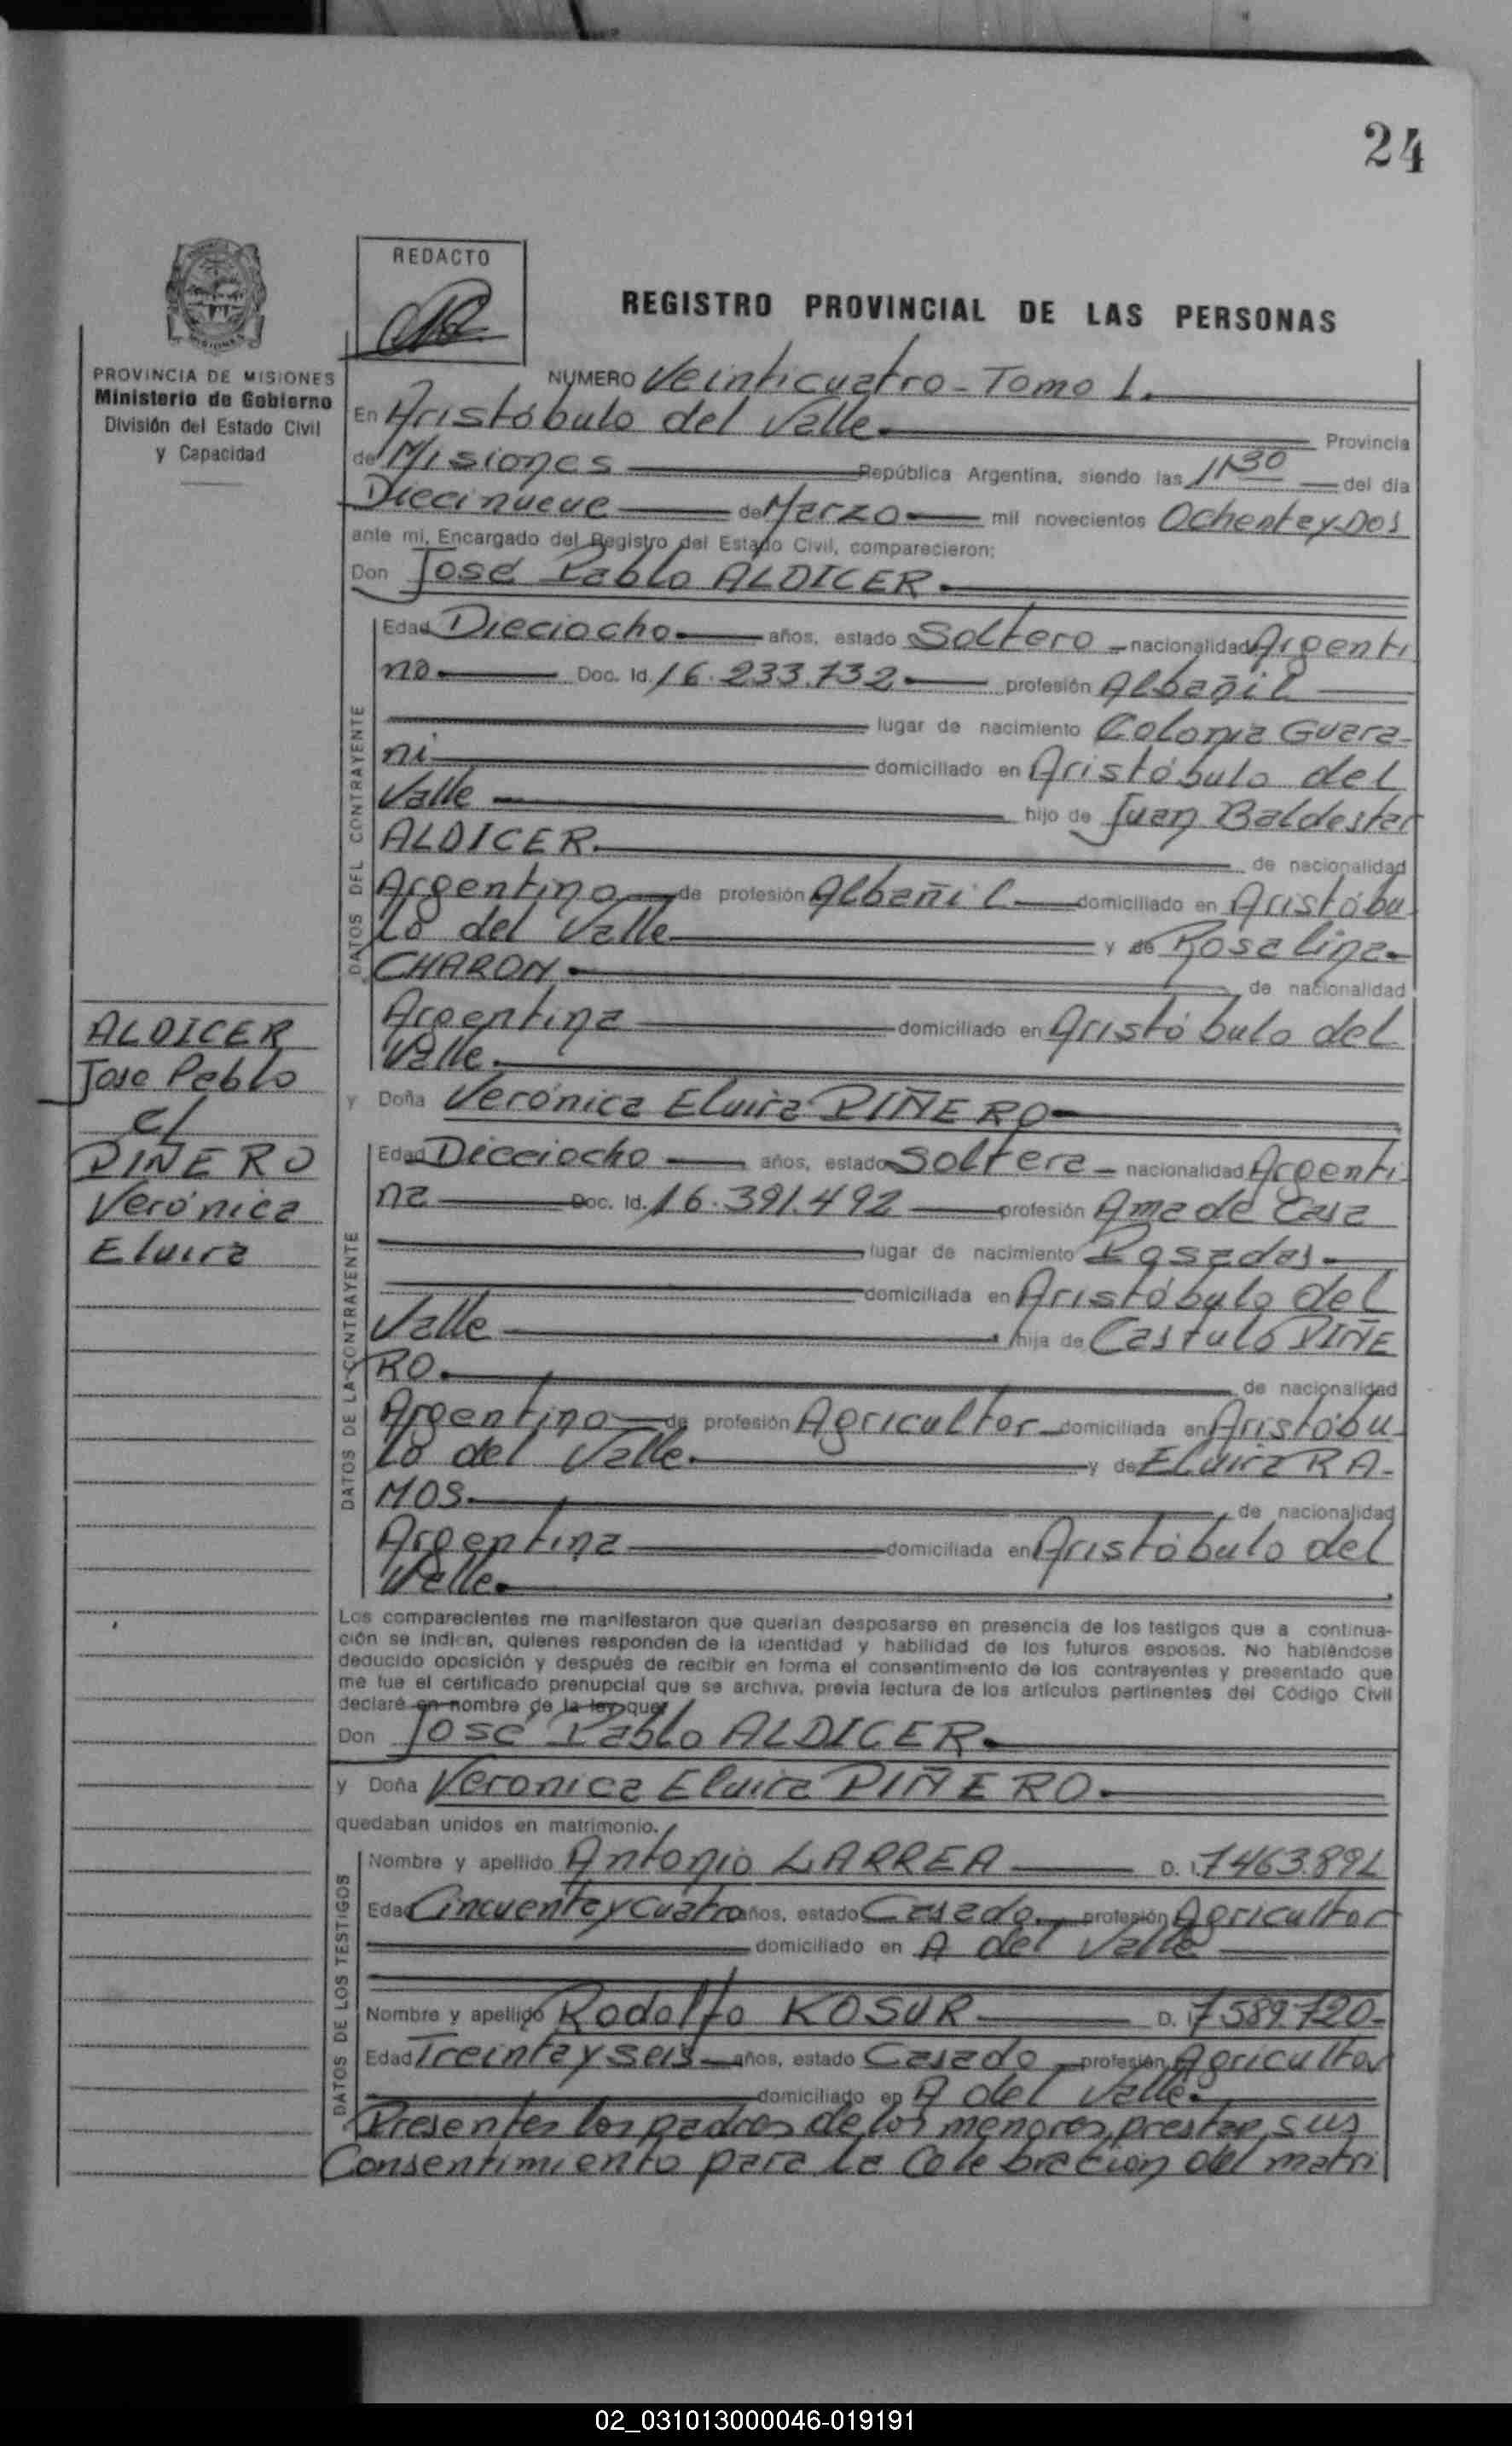 24
REDACTO
REGISTRO PROVINCIAL DE LAS PERSONAS
PROVINCIA DE MISIONES
Ministerio de Gobierno
División del Estado Civil
y Capacidad
NUMERO Veinticuatro - Tomo 1.
En Aristóbulo del Valle. Provincia
de Misiones República Argentina, siendo las 11:30 del día
Diecinueve de Marzo mil novecientos Ochenta y Dos
ante mi, Encargado del Registro del Estado Civil, comparecieron:
Don José Pablo ALDICER.
DATOS DEL CONTRAYENTE
Edad Dieciocho años, estado Soltero nacionalidad Argenti
no Doc. Id. 16.233.732 profesión Albañil
lugar de nacimiento Colonia Guara-
ni domiciliado en Aristóbulo del
Valle hijo de Juan Baldester
ALDICER. de nacionalidad
Argentino de profesión Albañil domiciliado en Aristóbu
lo del Valle y de Rosalina
CHARON. de nacionalidad
Argentina domiciliado en Aristóbulo del
Valle.
ALDICER
Jose Pablo
c/
PIÑERO
Verónica
Elvira
y Doña Verónica Elvira PIÑERO
DATOS DE LA CONTRAYENTE
Edad Dieciocho años, estado Soltera nacionalidad Argenti
na Doc. Id. 16.391.492 profesión Ama de Casa
lugar de nacimiento Posadas
domiciliada en Aristóbulo del
Valle hija de Castulo PIÑE
RO. de nacionalidad
Argentino de profesión Agricultor domiciliada en Aristóbu
lo del Valle. y de Elvira RA-
MOS. de nacionalidad
Argentina domiciliada en Aristóbulo del
Valle.
Los comparecientes me manifestaron que querian desposarse en presencia de los testigos que a continua-
ción se indican, quienes responden de la identidad y habilidad de los futuros esposos. No habiéndose
deducido oposición y después de recibir en forma el consentimiento de los contrayentes y presentado que
me fue el certificado prenupcial que se archiva, previa lectura de los artículos pertinentes del Código Civil
declaré en nombre de la ley que
Don José Pablo ALDICER.
y Doña Veronica Elvira PIÑERO.
quedaban unidos en matrimonio.
DATOS DE LOS TESTIGOS
Nombre y apellido Antonio LARREA D. I. 7463.891
Edad Cincuenta y Cuatro años, estado Casado profesión Agricultor
domiciliado en A del Valle
Nombre y apellido Rodolfo KOSUR D. I. 7.589.720-
Edad Treinta y seis años, estado Casado profesión Agricultor
domiciliado en A del Valle.
Presentes los padres de los menores, prestan sus
Consentimiento para la Celebracion del matri
02_031013000046-019191